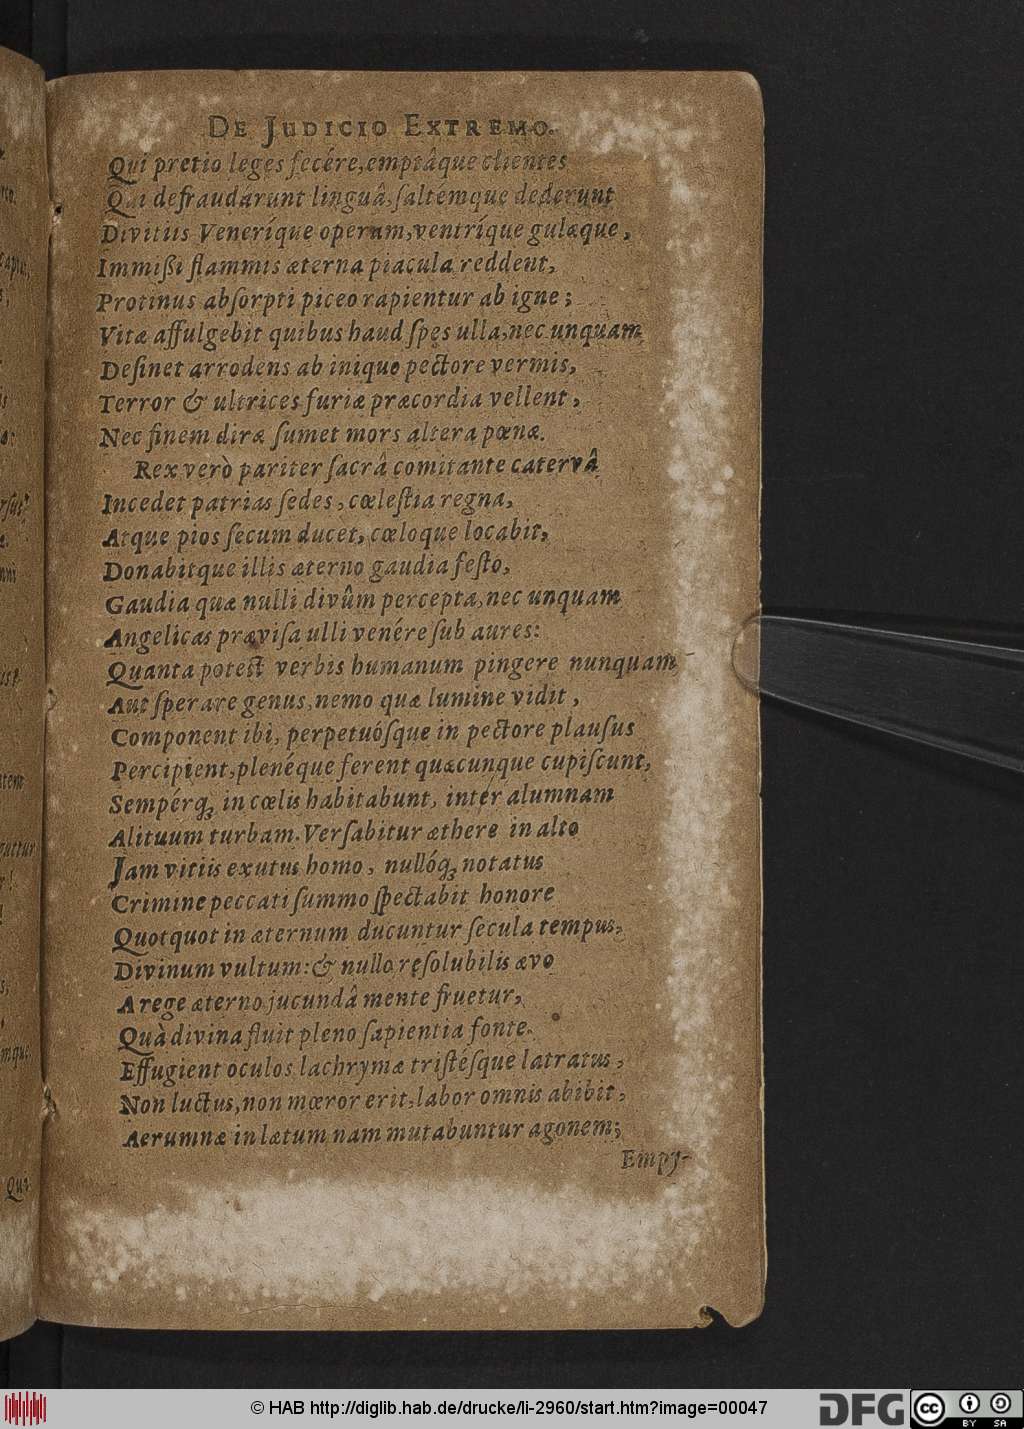 DE JUDICIO EXTREMO.
Qui pretio leges fecére, emptâque clientes
Qui defraudárunt linguâ, ſaltémque dederunt
Divitiis Veneríque operam, ventríque gulæque,
Immißi flammis æterna piacula reddent,
Protinus abſorpti piceo rapientur ab igne;
Vitæ affulgebit quibus haud ſpes ulla, nec unquam
Deſinet arrodens ab inique pectore vermis,
Terror & ultrices furiæ præcordia vellent,
Nec finem diræ ſumet mors altera pœnæ.
Rex verò pariter ſacrâ comitante catervâ
Incedet patrias ſedes, cœleſtia regna,
Atque pios ſecum ducet, cœloque locabit,
Donabitque illis æterno gaudia feſto,
Gaudia quæ nulli divûm percepta, nec unquam
Angelicas præviſa ulli venére ſub aures:
Quanta poteſt verbis humanum pingere nunquam
Aut ſperare genus, nemo quæ lumine vidit,
Component ibi, perpetuóſque in pectore plauſus
Percipient, plenéque ferent quæcunque cupiſcunt,
Sempérq; in cœlis habitabunt, intér alumnam
Alituum turbam. Verſabitur æthere in alto
Jam vitiis exutus homo, nullóq; notatus
Crimine peccati ſummo ſpectabit honore
Quotquot in æternum ducuntur ſecula tempus,
Divinum vultum: & nullo reſolubilis ævo
A rege æterno jucundâ mente fruetur,
Quà divina fluit pleno ſapientia fonte.
Effugient oculos lachrymæ triſtéſque latratus,
Non luctus, non mœror erit, labor omnis abibit,
Aerumnæ in lætum nam mutabuntur agonem;
Empy-
Qui
© HAB http://diglib.hab.de/drucke/li-2960/start.htm?image=00047
DFG
cc
BY SA